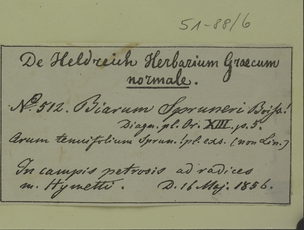 51-88/6
De Heldreich Herbarium Graecum
normale.
No. 512. Biarum Spruneri Boiss!
Diagn. pl. Or. XIII. p. 5.
Arum tenuifolium Sprun. (pl. exs. (non Lin.)
In campis petrosis ad radices
m. Hymetti. D. 16 Maj. 1856.